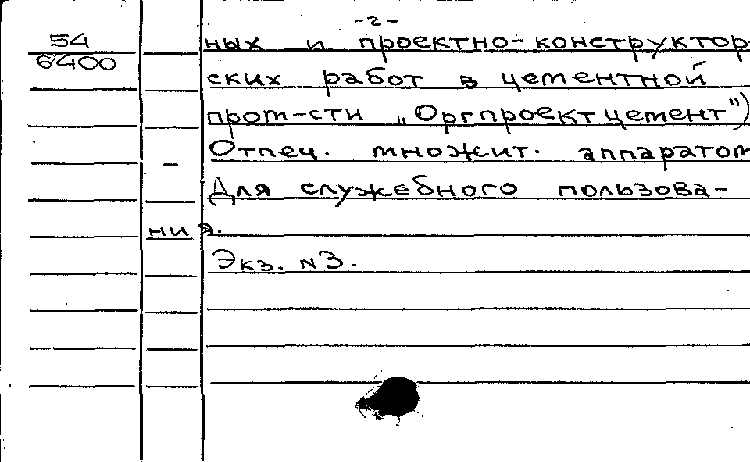 -2-
54
6400
ных и проектно-конструктор
ских работ в цементной
пром-сти „Оргпроектцемент")
Отпеч. множит. аппаратом
Для служебного пользова-
ния.
Экз. N3.